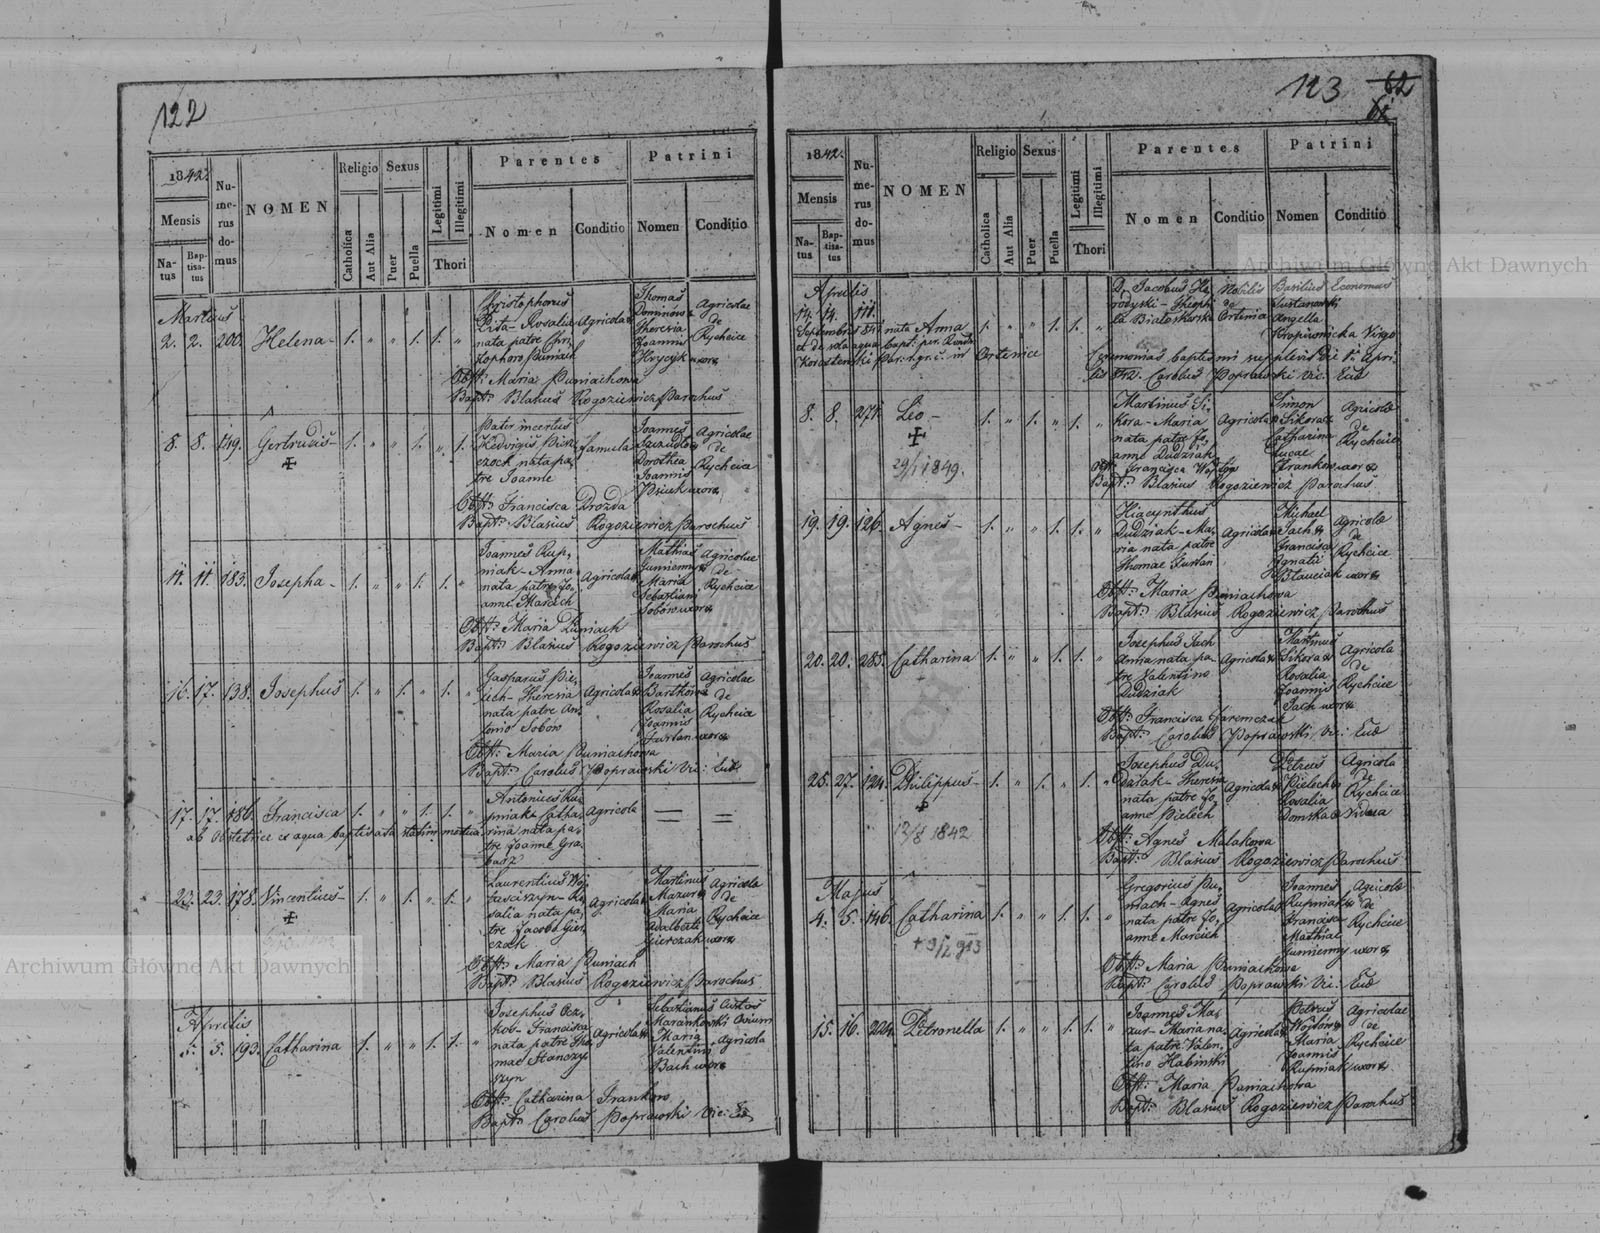 122
1842.
Mensis
Natus
Baptisatus
Numerus domus
NOMEN
Religio
Catholica
Aut Alia
Sexus
Puer
Puella
Legitimi
Illegitimi
Thori
Parentes
Nomen
Conditio
Patrini
Nomen
Conditio
Martius
2. 2. 200. Helena - 1. " " 1. 1. "
Christophorus
Rosalia Agricola
nata patre Chri,
stophoro Puniach
Thomas
Theresia
Joannis
Hrycyk uxor
Agricolae
de
Rychcice
Obst: Maria Puniachowa
Bapt: Blasius Rogoziewicz Parochus
8. 8. 149. Gertrudis - 1. " " 1. " 1.
Pater incertus
Hedvigis
nata pa,
tre Joanne
famula
Joannes
Dorothea
Joannis
uxor
Agricolae
de
Rychcice
Obst: Francisca Drozda
Bapt: Blasius Rogoziewicz Parochus
11. 11. 183. Josepha - 1. " " 1. 1. "
Joannes Rup,
niak - Anna
nata patre Jo,
anne Marcich
Agricola
Mathias
Maria
Sebastiani
Sobów uxor
Agricolae
de
Rychcice
Obst: Maria Puniach
Bapt: Blasius Rogoziewicz Parochus
16. 17. 138. Josephus 1. " 1. " 1. "
Gasparus Pie,
lech - Theresia
nata patre An,
tonio Sobów
Agricola
Joannes
Bartków
Rosalia
Joannis
Furtan uxor
Agricolae
de
Rychcice
Obst: Maria Puniachowa
Bapt: Carolus Poprawski Vic: Eccl
17. 17. 186. Francisca 1. " " 1. 1. "
ab Obstetrice ex aqua baptisata statim mortua
Antonius Ru,
pniak - Catha,
rina nata pa,
tre Joanne Gra,
barz
Agricola
23. 23. 178. Vincentius - 1. " 1. " 1. "
Laurentius Wo,
Ro,
salia nata pa,
tre Jacobo Gier,
czak
Agricola
Martinus
Mazur
Maria
Adalberti
Gierczak uxor
Agricola
de
Rychcice
Obst: Maria Puniach
Bapt: Blasius Rogoziewicz Parochus
Aprilis
5. 5. 193. Catharina 1. " " 1. 1. "
Josephus
Francisca
nata patre Tho,
mae Stanczy,
szyn
Agricola
Sebastianus
Marankowski
Maria
Valentini
Bach uxor
Custos
Ovium
Agricola
Obst: Catharina Frankow
Bapt: Carolus Poprawski Vic:
123
62
61
1842.
Mensis
Natus
Baptisatus
Numerus domus
NOMEN
Religio
Catholica
Aut Alia
Sexus
Puer
Puella
Legitimi
Illegitimi
Thori
Parentes
Nomen
Conditio
Patrini
Nomen
Conditio
Aprilis
14. 14. 111. Anna 1. " " 1. 1. "
Septembris 1841 nata
et de sola aqua bapt: per
D. Jacobus Ho,
rodyski - Thephi,
la Białoskórska
Nobilis
de
Ortenice
Basilius
Angella
Kropiwnicka
Economus
Virgo
Ceremonias baptismi supplevit die 1a Apri,
lis 842. Carolus Poprawski Vic: Eccl
8. 8. 271. Leo - 1. " 1. " 1. "
29/1 1849.
Martinus Si,
kora - Maria
nata patre Jo,
anne Dudziak
Agricola
Simon
Sikora
Catharina
Lucae
Frankow uxor
Agricolae
de
Rychcice
Obst: Francisca
Bapt: Blasius Rogoziewicz Parochus
19. 19. 126. Agnes - 1. " " 1. 1. "
Hiacynthus
Dudziak - Ma,
ria nata patre
Thomae Furtan
Agricola
Michael
Jach
Francisca
Ignatii
Blauciak uxor
Agricolae
de
Rychcice
Obst: Maria Puniachowa
Bapt: Blasius Rogoziewicz Parochus
20. 20. 285. Catharina 1. " " 1. 1. "
Josephus Jach
Anna nata pa,
tre Valentino
Dudziak
Agricola
Martinus
Sikora
Rosalia
Joannis
Jach uxor
Agricola
de
Rychcice
Obst: Francisca Jaremczak
Bapt: Carolus Poprawski Vic: Eccl
25. 27. 124. Philippus - 1. " 1. " 1. "
12/8 1842
Josephus Du,
dziak - Theresia
nata patre Jo,
anne Pielech
Agricola
Petrus
Pielech
Rosalia
Domska
Agricola
de
Rychcice
Vidua
Obst: Agnes Malakowa
Bapt: Blasius Rogoziewicz Parochus
Majus
4. 5. 146. Catharina 1. " " 1. 1. "
Gregorius Pu,
niach - Agnes
nata patre Jo,
anne Marcich
Agricola
Joannes
Rupniak
Francisca
Mathiae
uxor
Agricola
de
Rychcice
Obst: Maria Puniachowa
Bapt: Carolus Poprawski Vic: Eccl
15. 16. 224. Petronella 1. " " 1. 1. "
Joannes Ma,
zur - Maria na,
ta patre Valen,
tino Habinski
Agricola
Petrus
Wojtow
Maria
Joannis
Rupniak uxor
Agricolae
de
Rychcice
Obst: Maria Puniachowa
Bapt: Blasius Rogoziewicz Parochus
Archiwum Główne Akt Dawnych
Archiwum Główne Akt Dawnych